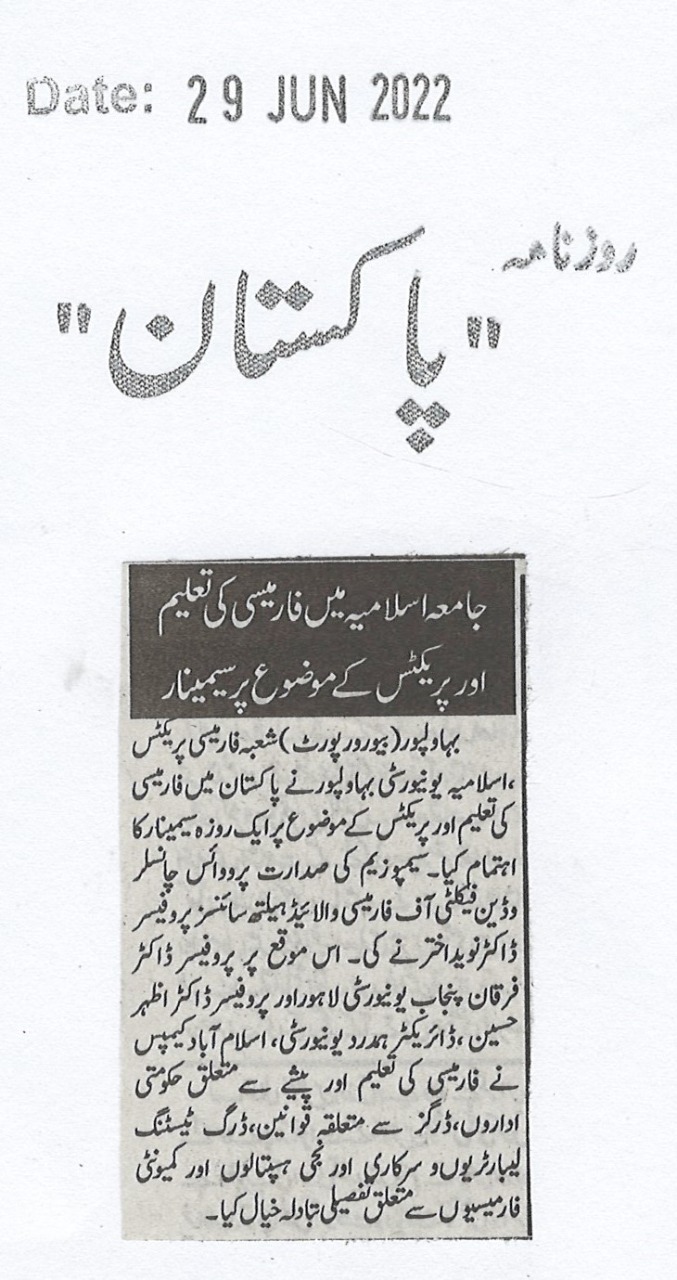 Date: 29 JUN 2022
روزنامہ
"پاکستان"
جامعہ اسلامیہ میں فارمیسی کی تعلیم
اور پریکٹس کے موضوع پر سیمینار
بہاولپور(بیورورپورٹ)شعبہ فارمیسی پریکٹس
،اسلامیہ یونیورسٹی بہاولپور نے پاکستان میں فارمیسی
کی تعلیم اور پریکٹس کے موضوع پر ایک روزہ سیمینار کا
اہتمام کیا۔ سیمپوزیم کی صدارت پرووائس چانسلر
وڈین فیکلٹی آف فارمیسی والائیڈ ہیلتھ سائنسز پروفیسر
ڈاکٹر نوید اختر نے کی۔ اس موقع پر پروفیسر ڈاکٹر
فرقان پنجاب یونیورسٹی لاہور اور پروفیسر ڈاکٹر اظہر
حسین ،ڈائریکٹر ہمدرد یونیورسٹی، اسلام آباد کیمپس
نے فارمیسی کی تعلیم اور پیشے سے متعلق حکومتی
اداروں،ڈرگز سے متعلقہ قوانین،ڈرگ ٹیسٹنگ
لیبارٹریوں و سرکاری اور نجی ہسپتالوں اور کمیونٹی
فارمیسیوں سے متعلق تفصیلی تبادلہ خیال کیا۔